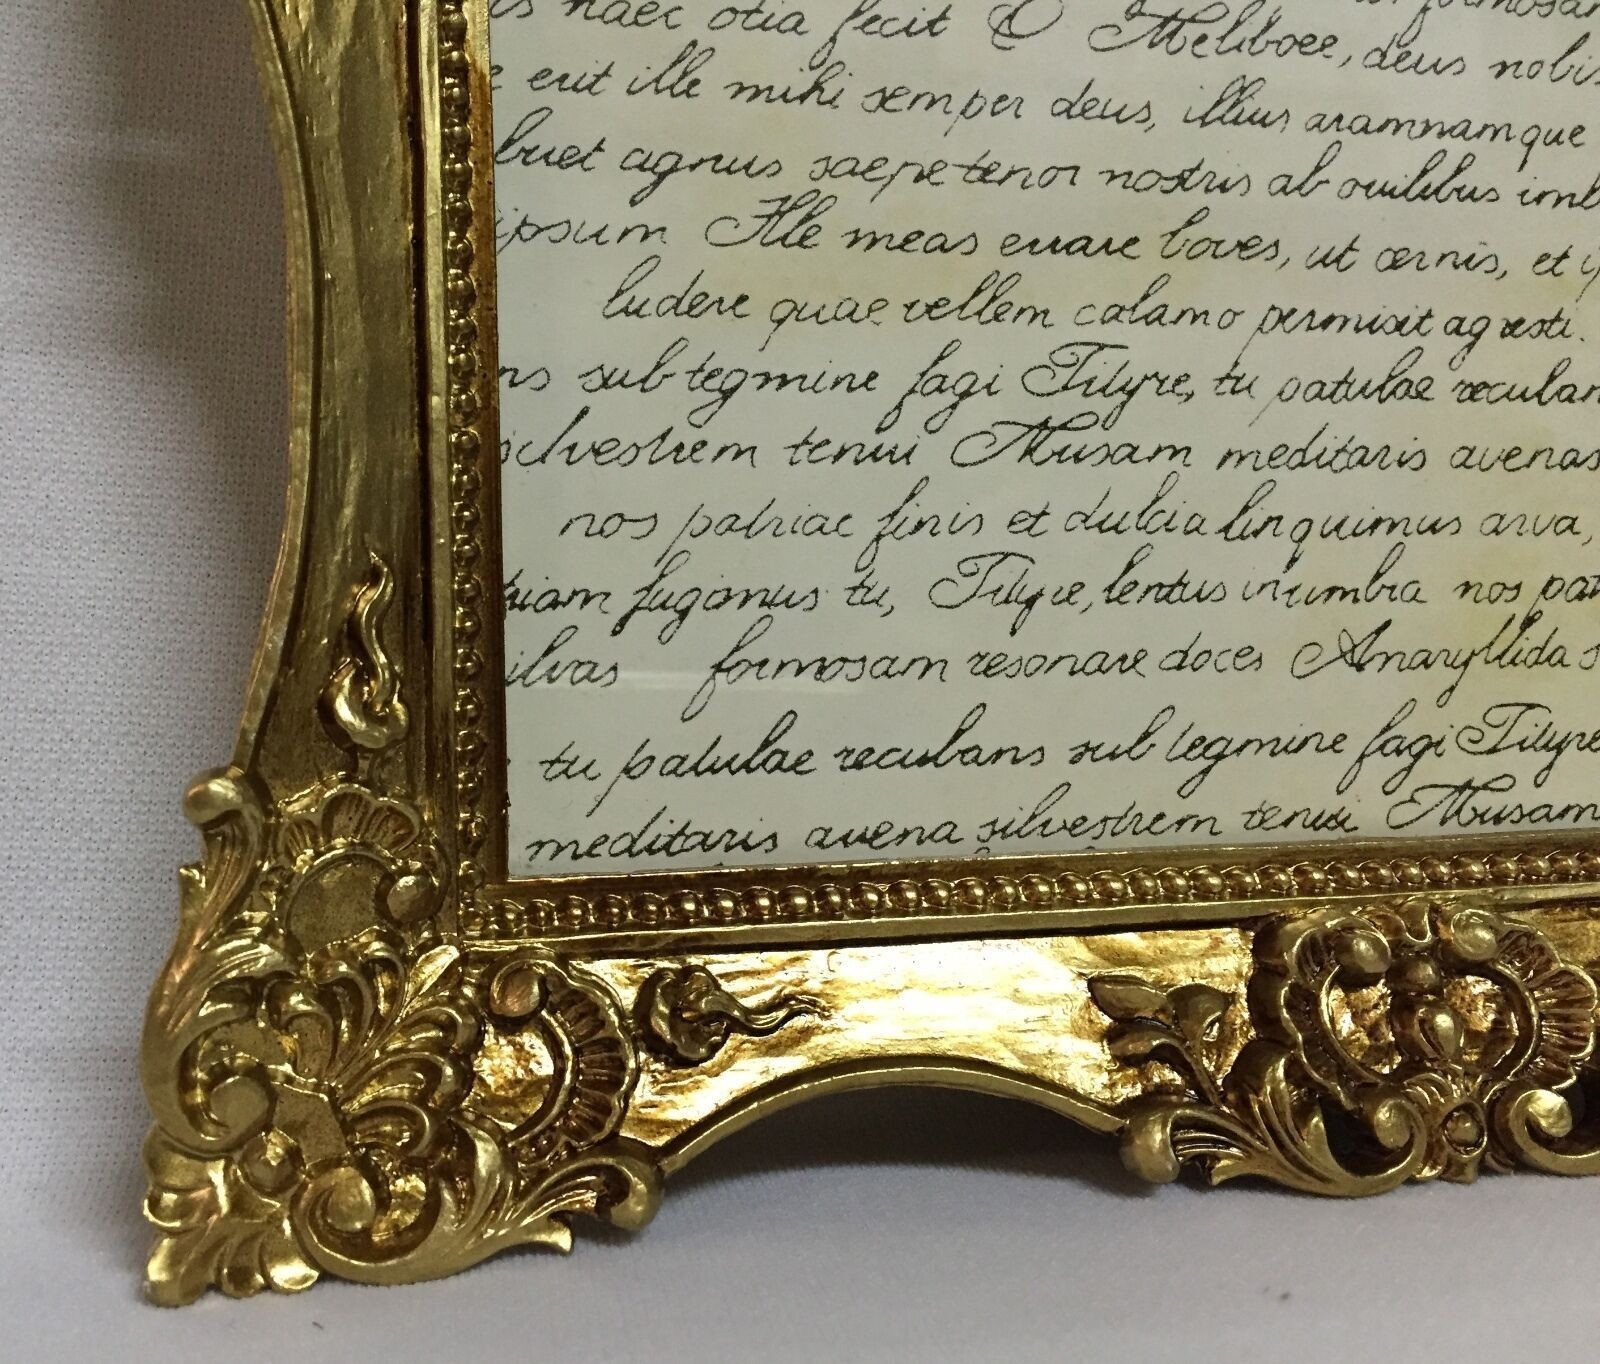 haec otia fecit O Meliboee, deus nobis
erit ille mihi semper deus, illius aramnamque
buet agnus saepe tener nostris ab ovilibus imb
ipsum Ille meas errare boves, ut cernis, et ip
ludere quae vellem calamo permisit agresti.
ns sub tegmine fagi Tityre, tu patulae recuban
silvestrem tenui Musam meditaris avenas
nos patriae finis et dulcia linquimus arva,
triam fugamus tu, Tityre, lentus in umbra nos pat
ilvas formosam resonare doces Amaryllida s
tu patulae recubans sub tegmine fagi Tityre
meditaris avena silvestrem tenui Musam